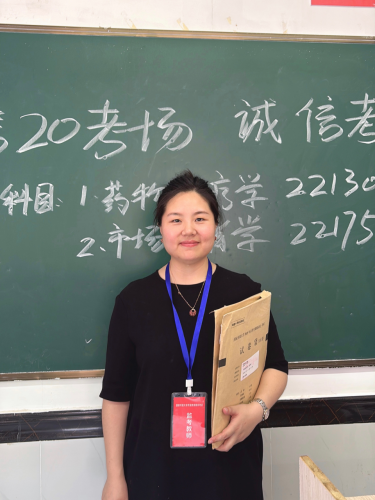 20考场 诚信考
科目: 1.药物 学 22130
2.市场 学 22175
试卷袋
监考教师